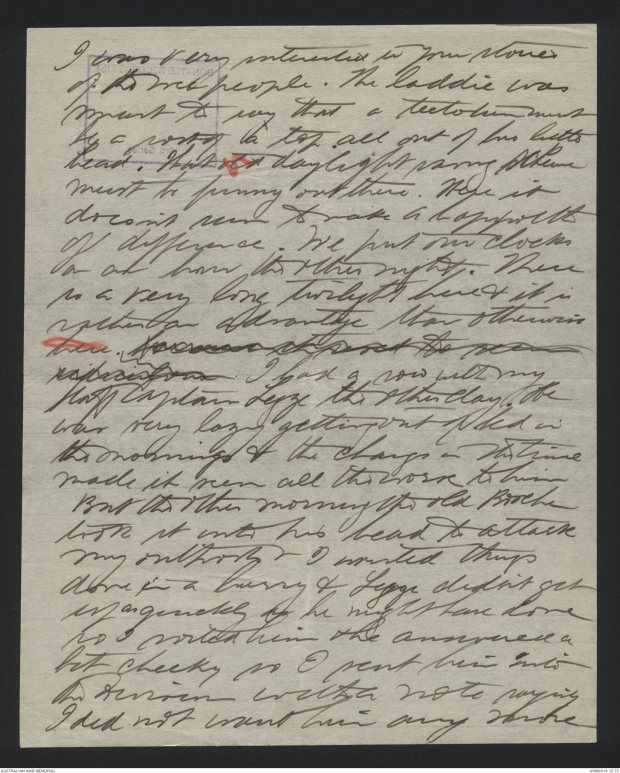 I was very interested in your stories
of the wee people. The laddie was
smart to say that a teetotum must
be a sort of a top, all out of his little
head. That daylight saving scheme
must be funny out there. Here it
doesn't seem to make a happorth
of difference. We put our clocks
on an hour the other night. There
is a very long twilight here & it is
rather an advantage than otherwise
here. I had a row with my
Staff Captain Legge the other day. He
was very lazy getting out of bed in
the mornings & the change in the time
made it seem all the worse to him
But the other morning the old Boche
took it into his head to attack
my outposts & I wanted things
done in a hurry & Legge didn't get
up as quickly as he might have done
so I roused him & he answered a
bit cheeky so I sent him into
the Division with a note saying
I did not want him any more
AUSTRALIAN WAR MEMORIAL